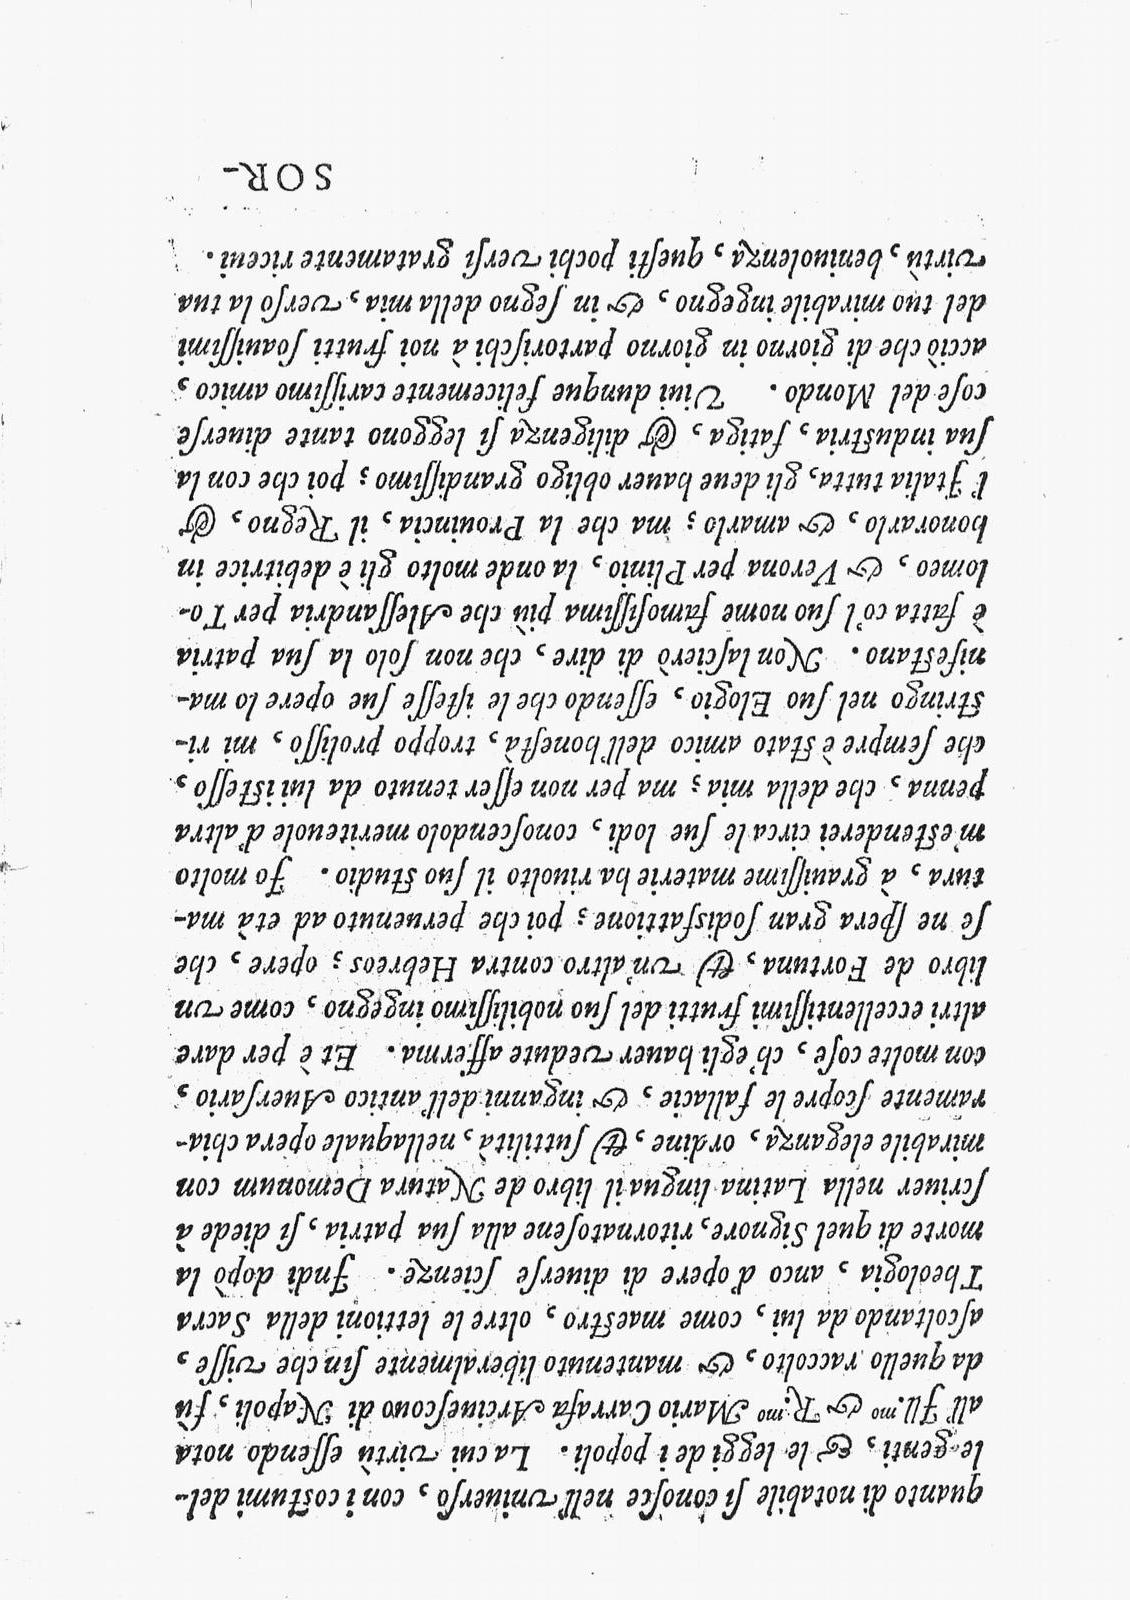 quanto di notabile ſi conoſce nell'vniuerſo, con i coſtumi del-
le genti, & le leggi de i popoli. La cui virtù eſſendo nota
all' Ill.mo & R.mo Mario Carrafa Arciueſcouo di Napoli, fù
da quello raccolto, & mantenuto liberalmente fin che viſſe,
aſcoltando da lui, come maeſtro, oltre le lettioni della Sacra
Theologia, anco d'opere di diuerſe ſcienze. Indi dopò la
morte di quel Signore, ritornatoſene alla ſua patria, ſi diede à
ſcriuer nella Latina lingua il libro de Natura Demonum con
mirabile eleganza, ordine, & ſuttilità, nella quale opera chia-
ramente ſcopre le fallacie, & inganni dell'antico Auerſario,
con molte coſe, ch'egli hauer vedute afferma. Et è per dare
altri eccellentiſſimi frutti del ſuo nobiliſſimo ingegno, come vn
libro de Fortuna, & vn'altro contra Hebreos; opere, che
ſe ne ſpera gran ſodisfattione; poi che peruenuto ad età ma-
tura, à grauiſſime materie ha riuolto il ſuo ſtudio. Io molto
m'eſtenderei circa le ſue lodi, conoſcendolo meriteuole d'altra
penna, che della mia; ma per non eſſer tenuto da lui iſteſſo,
che ſempre è ſtato amico dell'honeſtà, troppo proliſſo, mi ri-
ſtringo nel ſuo Elogio, eſſendo che le iſteſſe ſue opere lo ma-
nifeſtano. Non laſcierò di dire, che non ſolo la ſua patria
è fatta co'l ſuo nome famoſiſſima più che Aleſſandria per To-
lomeo, & Verona per Plinio, la onde molto gli è debitrice in
honorarlo, & amarlo; ma che la Prouincia, il Regno, &
l'Italia tutta, gli deue hauer obligo grandiſſimo; poi che con la
ſua induſtria, fatiga, & diligenza ſi leggono tante diuerſe
coſe del Mondo. Viui dunque felicemente cariſſimo amico,
acciò che di giorno in giorno partoriſchi à noi frutti ſoauiſſimi
del tuo mirabile ingegno, & in ſegno della mia, verſo la tua
virtù, beniuolenza, queſti pochi verſi gratamente riceui.
SOR-